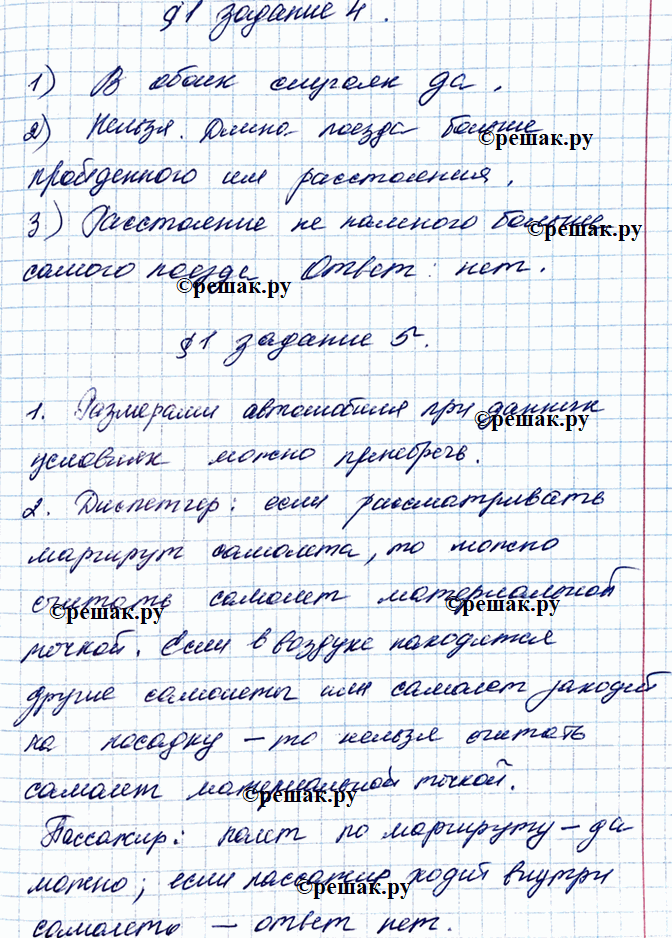 §1 задание 4.
1) В обоих случаях да.
2) Нельзя. Длина поезда больше
©решак.ру
пройденного им расстояния.
3) Расстояние не намного больше
©решак.ру
самого поезда Ответ: нет.
©решак.ру
§1 задание 5.
1. Размерами автомобиля при данных
©решак.ру
условиях можно пренебречь.
2. Диспетчер: если рассматривать
маршрут самолета, то можно
считать самолет материальной
©решак.ру ©решак.ру
точкой. Если в воздухе находятся
другие самолеты или самолет заходит
на посадку – то нельзя считать
самолет материальной точкой.
©решак.ру
Пассажир: полет по маршруту – да
можно; если пассажир ходит внутри
©решак.ру
самолета – ответ нет.